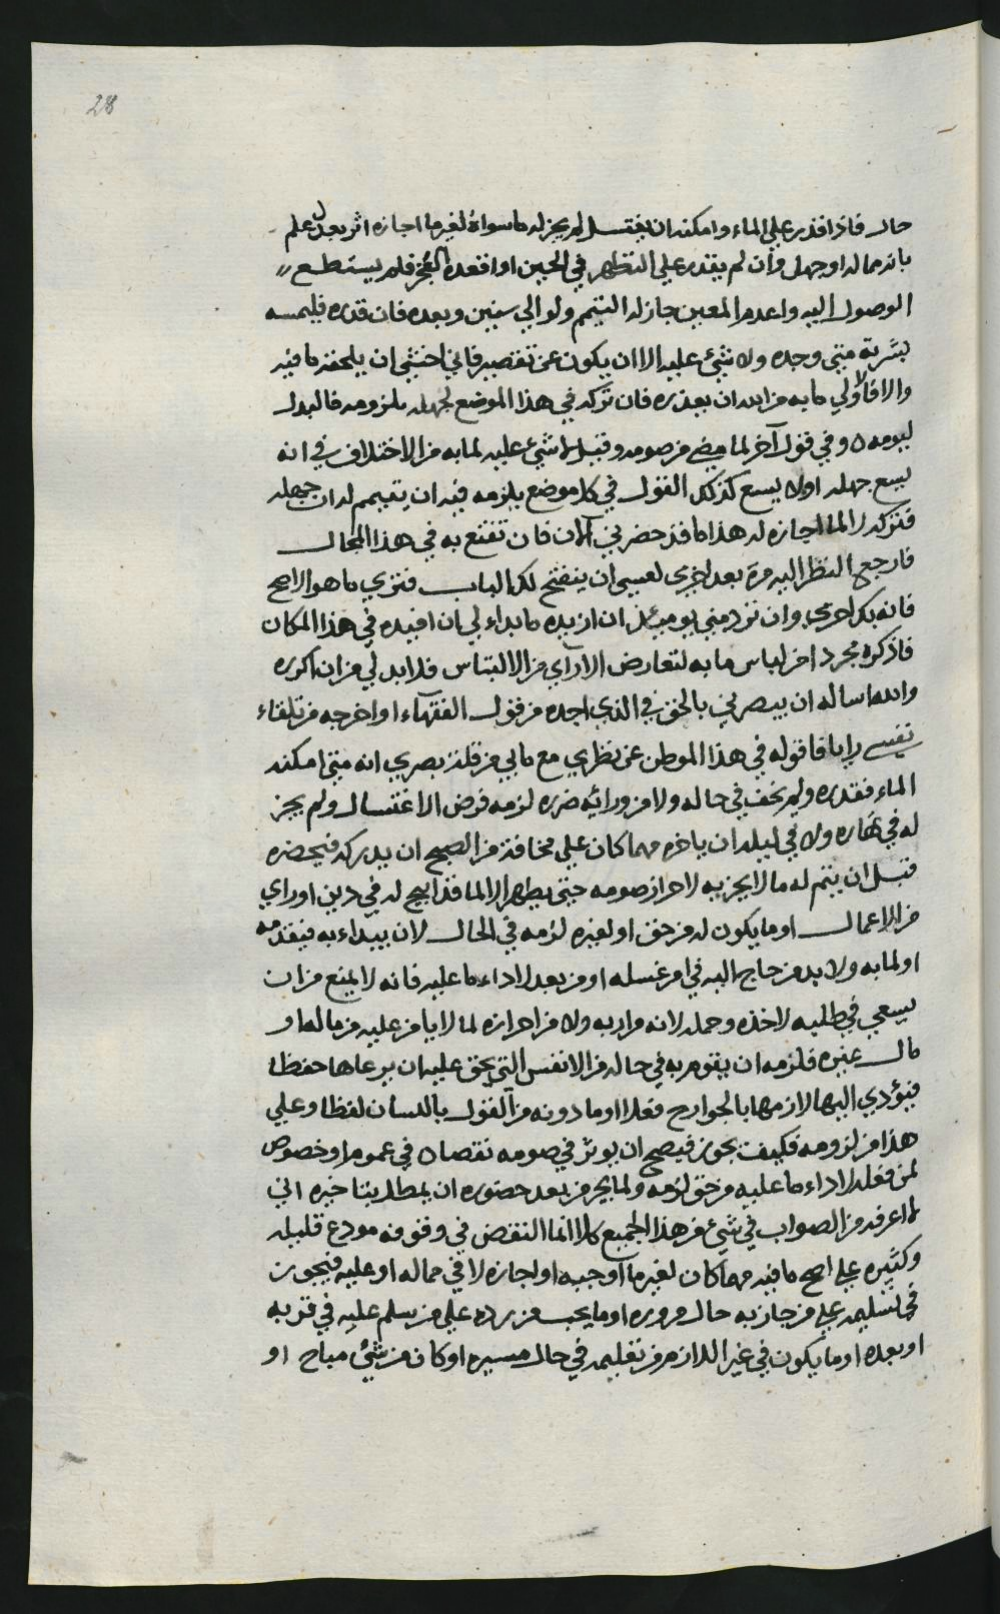 28
حال فاذا قدر على الماء وامكنه ان يغتسل لم يجز له ما سواه لغير ما اجازه اثر بعدل علم
بانه ماله او جهل وان لم يقدر على التطهر في الحين او اقعده العجز فلم يستطع
الوصول اليه واعدم المعين جاز له التيمم ولو الى سنين وبعده فان قدره فليمسه
بشرته متى وجده ولا شيء عليه الا ان يكون عن تقصير فاني اخشى ان يلحقه ما فيه
والا فالاولى ما به من الله ان يعذره فان تركه في هذا الموضع لجهله بلزومه فالبدل
ليومه وفي قول آخر لما مضى من صومه وقيل لا شيء عليه لما به من الاختلاف في انه
يسع جهله اولا يسع كذلك القول في كل موضع يلزمه فيه ان يتيمم له ان جهله
فتركه لا لما اجازه له هذا ما قد حضرني الآن فان تقنع به في هذا المحال
فارجع النظر اليه مرة بعد اخرى لعسى ان ينفتح لك الباب فترى ما هو الاصح
فانه بك احرى وان ترد مني يومئذ ان ازيده ما بدا لي ان افيده في هذا المكان
فاذكره مجرد اخر لباس ما به لتعارض الارآي من الالتباس فلا بد لي من ان اكرره
والله اساله ان يبصرني بالحق في الذي اجده من قول الفقهاء او اخرجه من تلقاء
نفسي رايا فاقوله في هذا الموطن عن نظري مع ما بي من قلة بصري انه متى امكنه
الماء فقدره ولم يخف في حاله ولا من ورائه ضرره لزمه فرض الاغتسال ولم يجز
له في نهاره ولا في ليله ان ياخره مهما كان على مخافة من الصبح ان يدركه فيحضره
قبل ان يتم له ما لا يجزيه لاحراز صومه حتى يطهر الا لما قد ابيح له في دين او راي
من الاعمال او ما يكون له من حق او لغيره لزمه في الحال لان يبداء به فيقدمه
او لما به ولا بد من حاج اليه في امر غسله او من بعد لاداء ما عليه فانه لا يمنع من ان
يسعى في طلبه لاخذه وحمله لانه مراد به ولا من احرازه لما لا يامن عليه من ماله او
مال غيره فلزمه ان يقوم به في حاله من الانفس التي يحق عليه ان يرعاها حفظا
فيؤدي اليها لازمها بالجوارح فعلا او ما دونه من القول باللسان لفظا وعلى
هذا من لزومه فكيف يجوز فيصح ان يوثر في صومه نقصا في عموم او خصوص
لمن فعله لاداء ما عليه من حق لزمه ولما يجز من بعد حضوره ان يمطل بتاخيره اني
لا اعرفه من الصواب في شيء من هذا الجميع كلا انما النقض في وقوفه مودع قليله
وكثيره على اصح ما فيه مهما كان لغير ما اوجبه او اجازه لا في ماله او عليه فيجوز
في تسليمه على من جاز به حال مروره او ما يجب من رده على من سلم عليه في قربه
او بعده او ما يكون في غير اللازم من تعليمه في حال مسيره او كان من شيء مباح او